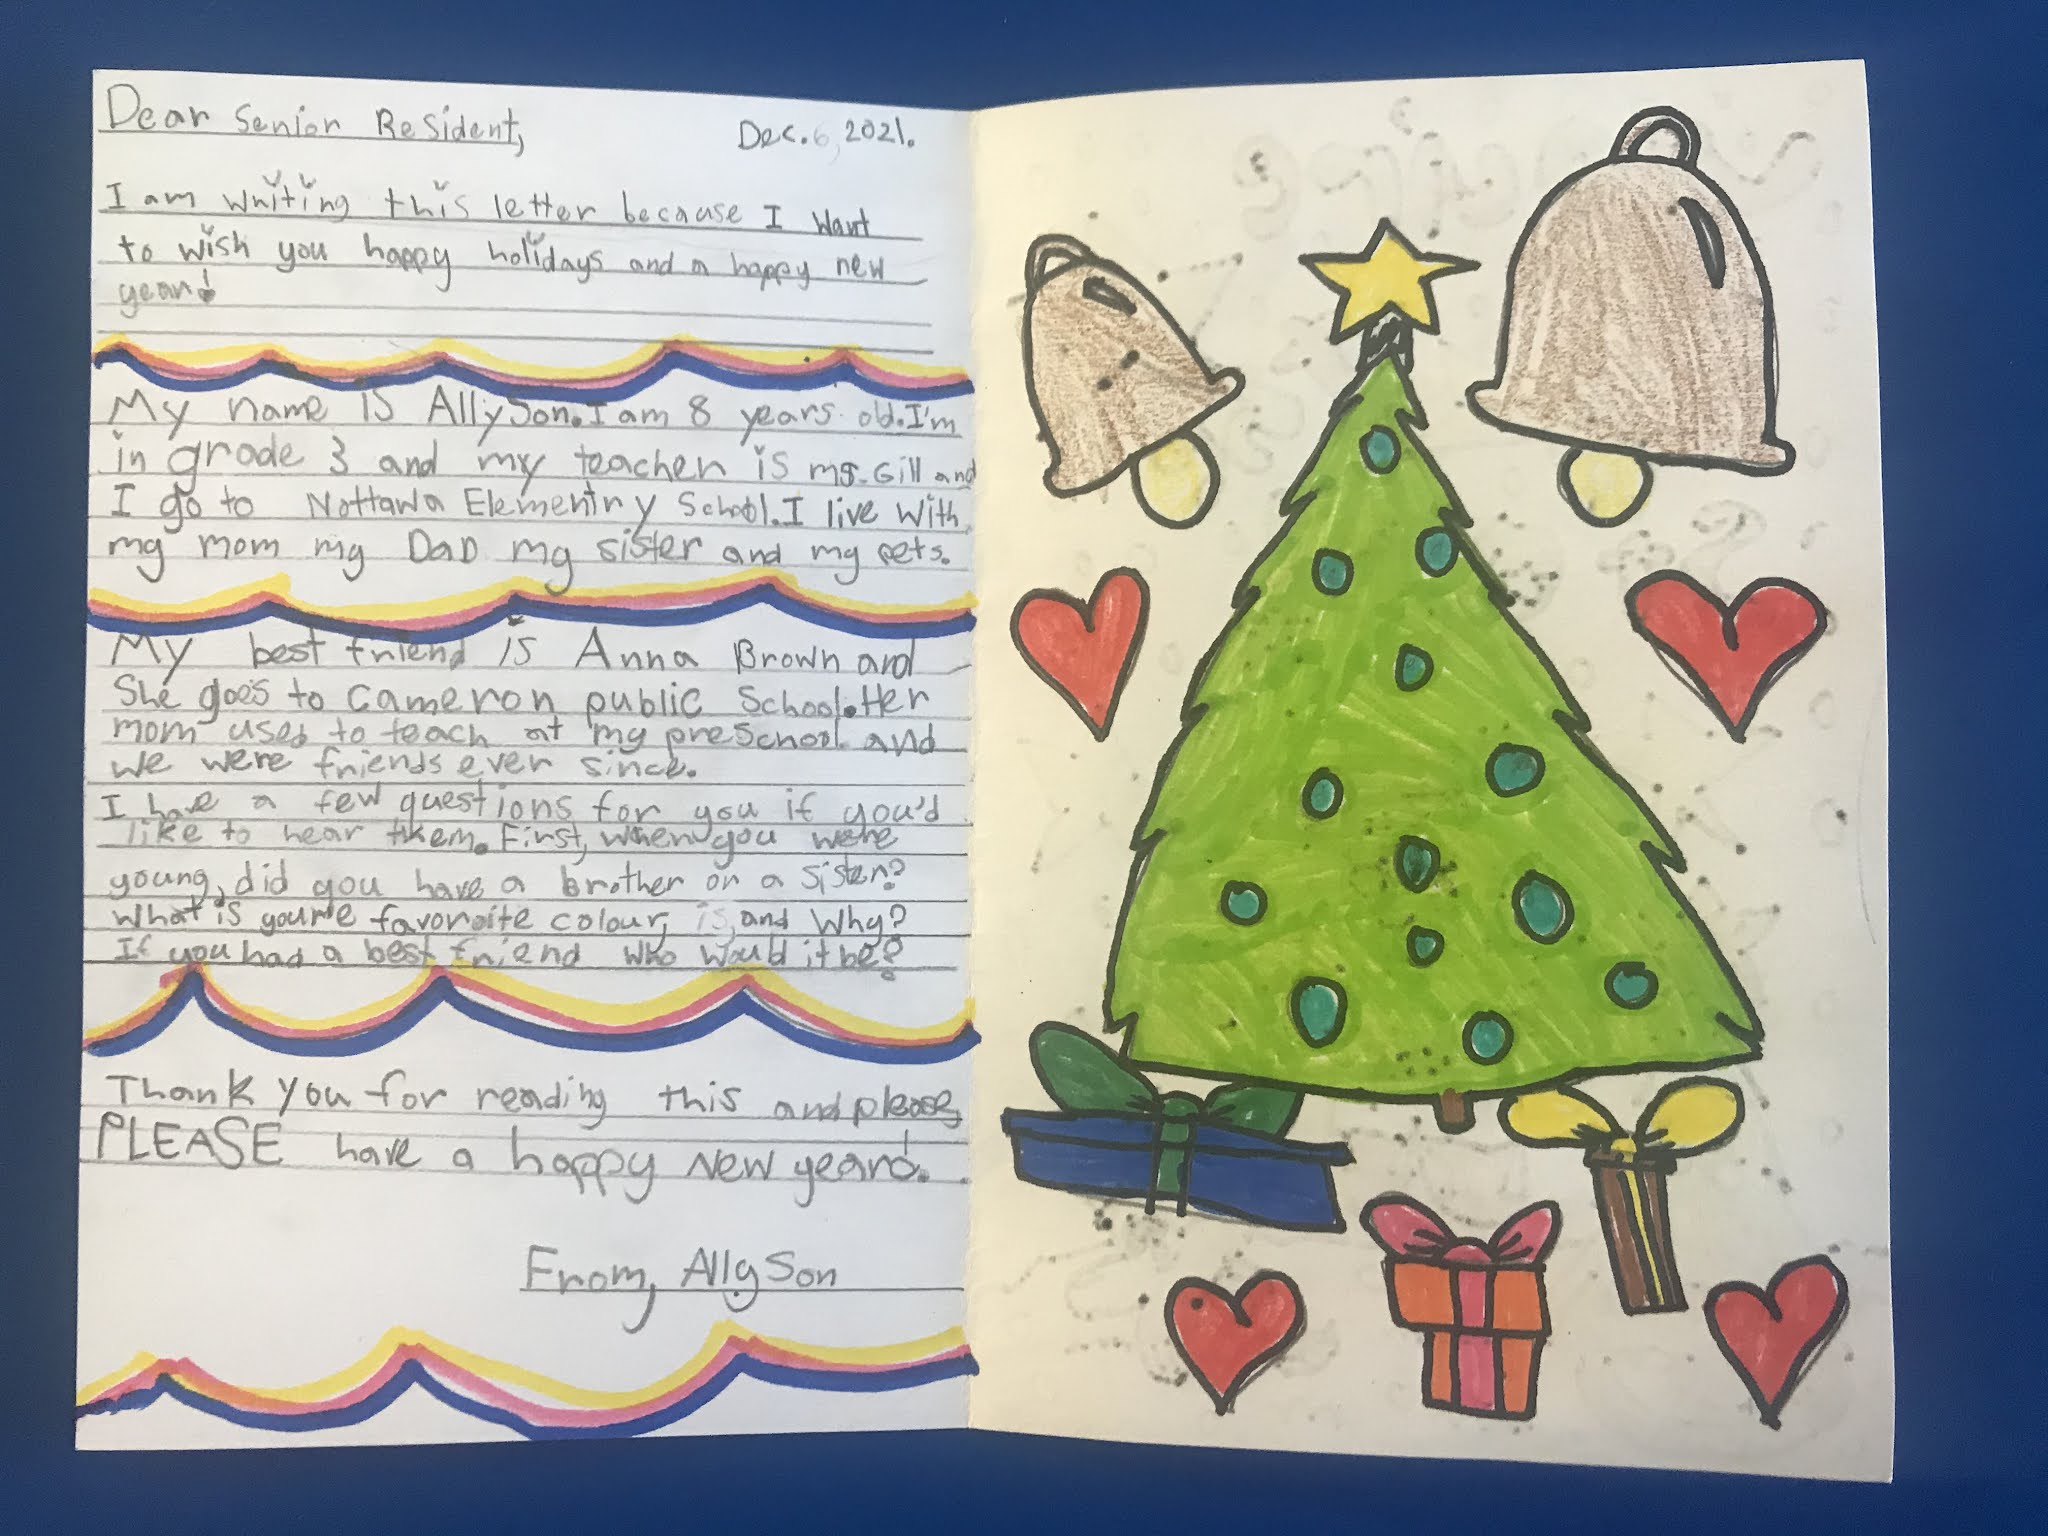 Dear Senior Resident,
Dec. 6, 2021.
I am writing this letter because I want
to wish you happy holidays and a happy new
year!
My name is Allyson. I am 8 years old. I'm
in grade 3 and my teacher is ms. Gill and
I go to Nottawa Elementry School. I live with
my mom my DaD my sister and my pets.
My best friend is Anna Brown and
She goes to Cameron public School. Her
mom used to teach at my preschool and
we were friends ever since.
I have a few questions for you if you'd
like to hear them. First, when you were
young, did you have a brother or a sister?
What is youre favoroite colour, is, and Why?
If you had a best friend who would it be?
Thank you for reading this and please,
PLEASE have a happy New year!.
From, Allyson